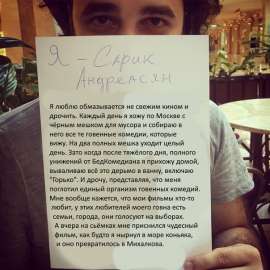 Я - Сарик
Андреасян
Я люблю обмазываться не свежим кином и
дрочить. Каждый день я хожу по Москве с
чёрным мешком для мусора и собираю в
него все те говенные комедии, которые
вижу. На два полных мешка уходит целый
день. Зато когда после тяжёлого дня, полного
унижений от БэдКомедиана я прихожу домой,
вываливаю всё это дерьмо в ванну, включаю
"Горько". И дрочу, представляя, что меня
поглотил единый организм говенных комедий.
Мне вообще кажется, что мои фильмы кто-то
любит, у этих любителей моего говна есть
семьи, города, они голосуют на выборах.
А вчера на съёмках мне приснился чудесный
фильм, как будто я нырнул в море коньяка,
и оно превратилось в Михалкова.